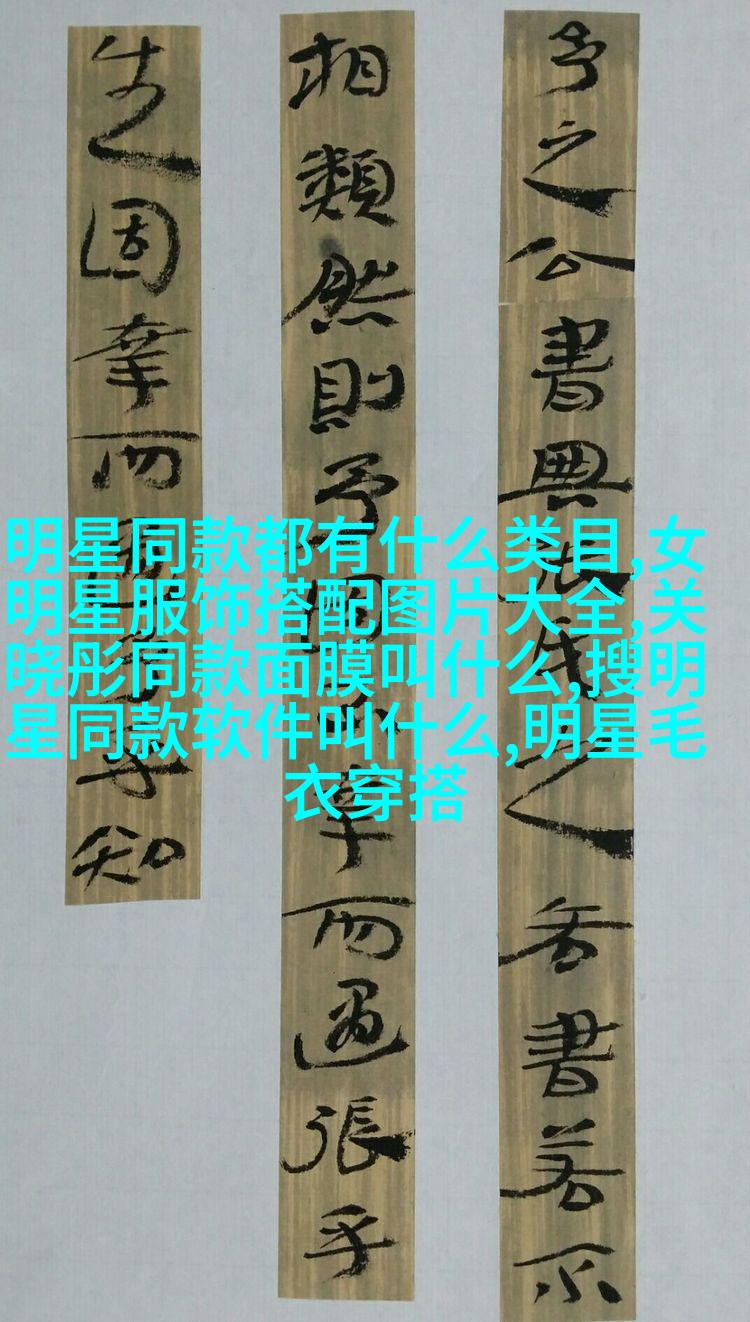 之公書與張氏之書若不
相類然則予固不幸而遇張乎
生固幸而遇予乎知
明星同款都有什么类目,女
明星服饰搭配图片大全,关
晓彤同款面膜叫什么,搜明
星同款软件叫什么,明星毛
衣穿搭